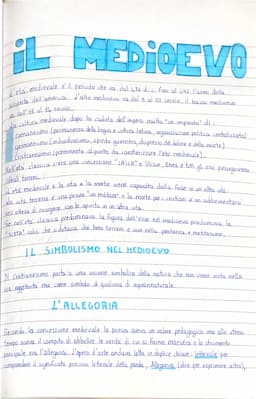 IL MEDIOEVO
L'età medievale è il periodo che va dal 476 d.C. fino al 1492 l'anno della
scoperta dell'america. L'alto medioevo va dal 5 al 10 secolo, il basso medioevo
va dall'11 al 14 secolo.
La cultura medievale dopo la caduta dell'impero risulta "un impasto" di:
romanesimo (permanenza della lingua e cultura latina, organizzazione politica centralizzata)
germanesimo (imbarbarimento, spirito guerriero, disprezzo del dolore e della morte)
cristianesimo (permanente al punto da caratterizzare l'età medievale).
Nell'età classica c'era una concezione "LAICA" e
terreni.
L'età medievale e la vita e la morte viene
La vita terrena è una prova "un militare" e la morte per i cristiani è un addormentarsi
nell'attesa di risorgere, con lo spirito in un'altra vita.
Se nell'età classica predominava la figura dell'eroe nel medioevo predomina la
"SANTO" colui che si distacca dai beni terreni e vive nella penitenza e meditazione.
IL SIMBOLISMO NEL MEDIOEVO
Il Cristianesimo porta a una visione simbolica della natura che non viene vista nella
sua oggettività ma come simbolo di qualcosa di soprannaturale.
L'ALLEGORIA
Secondo la concezione medievale la poesia aveva un valore pedagogico ma allo stesso
tempo aveva il compito di abbellire la verità di cui si faceva maestra e lo strumento
principale era l'allegoria. L'opera d'arte andava letta in duplice chiave: letterale per
comprendere il significato preciso letterale della parola, Allegorica (dire per esprimere altro),